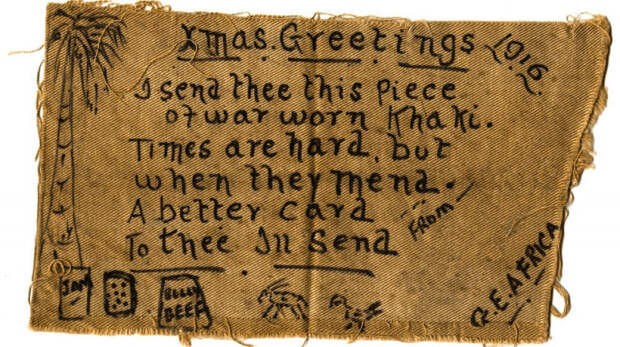 Xmas. Greetings 1916.
I send thee this piece
of war worn Khaki.
Times are hard, but
when they mend.
A better card
To thee Ill Send
From —
G.E.AFRICA
JAM
BULLY
BEEF